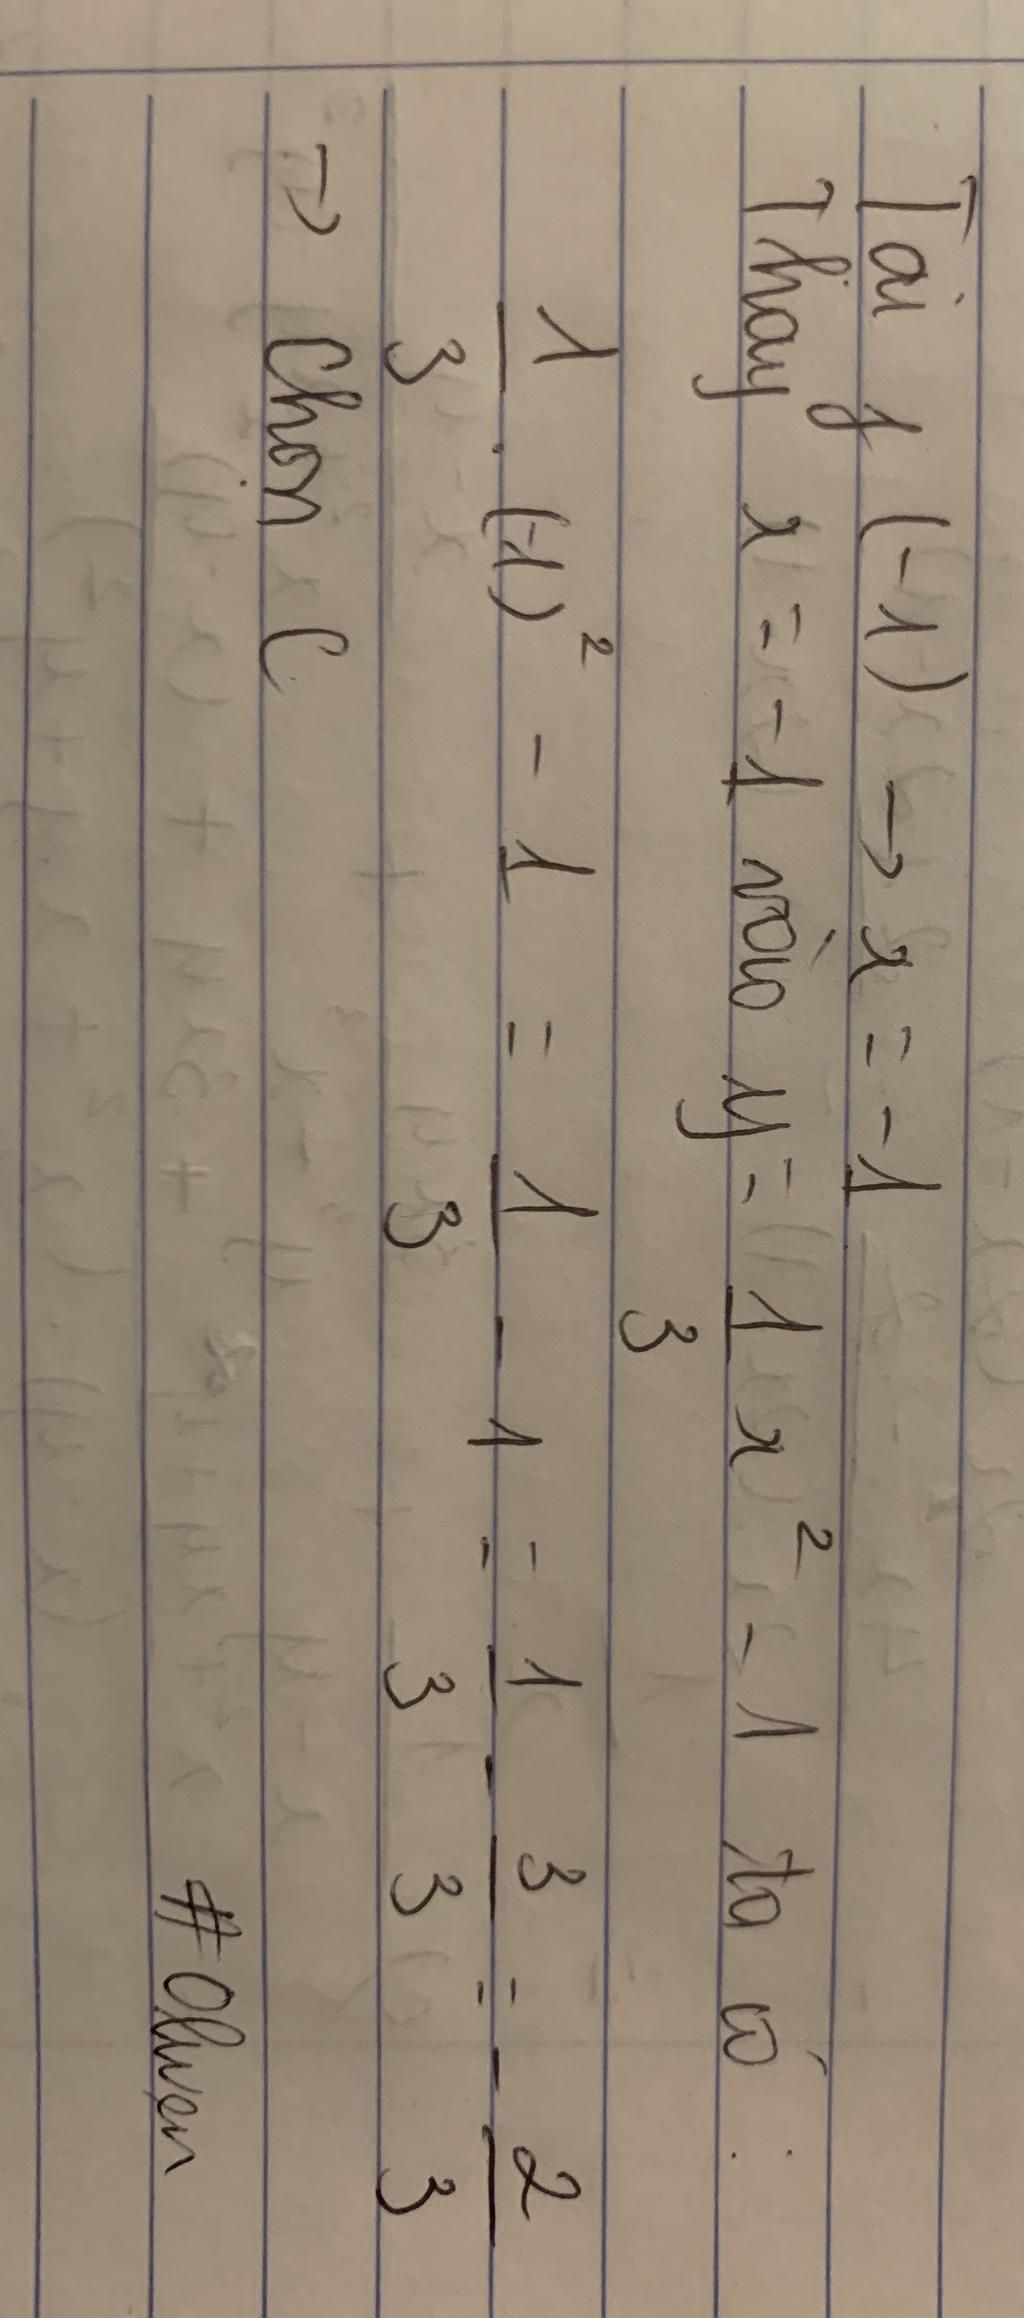 Tại f (-1) → x = -1
Thay x = -1 vào y = 1/3 x² - 1 ta có :
1/3 . (-1)² - 1 = 1/3 - 1 = 1/3 - 3/3 = - 2/3
→ Chọn C